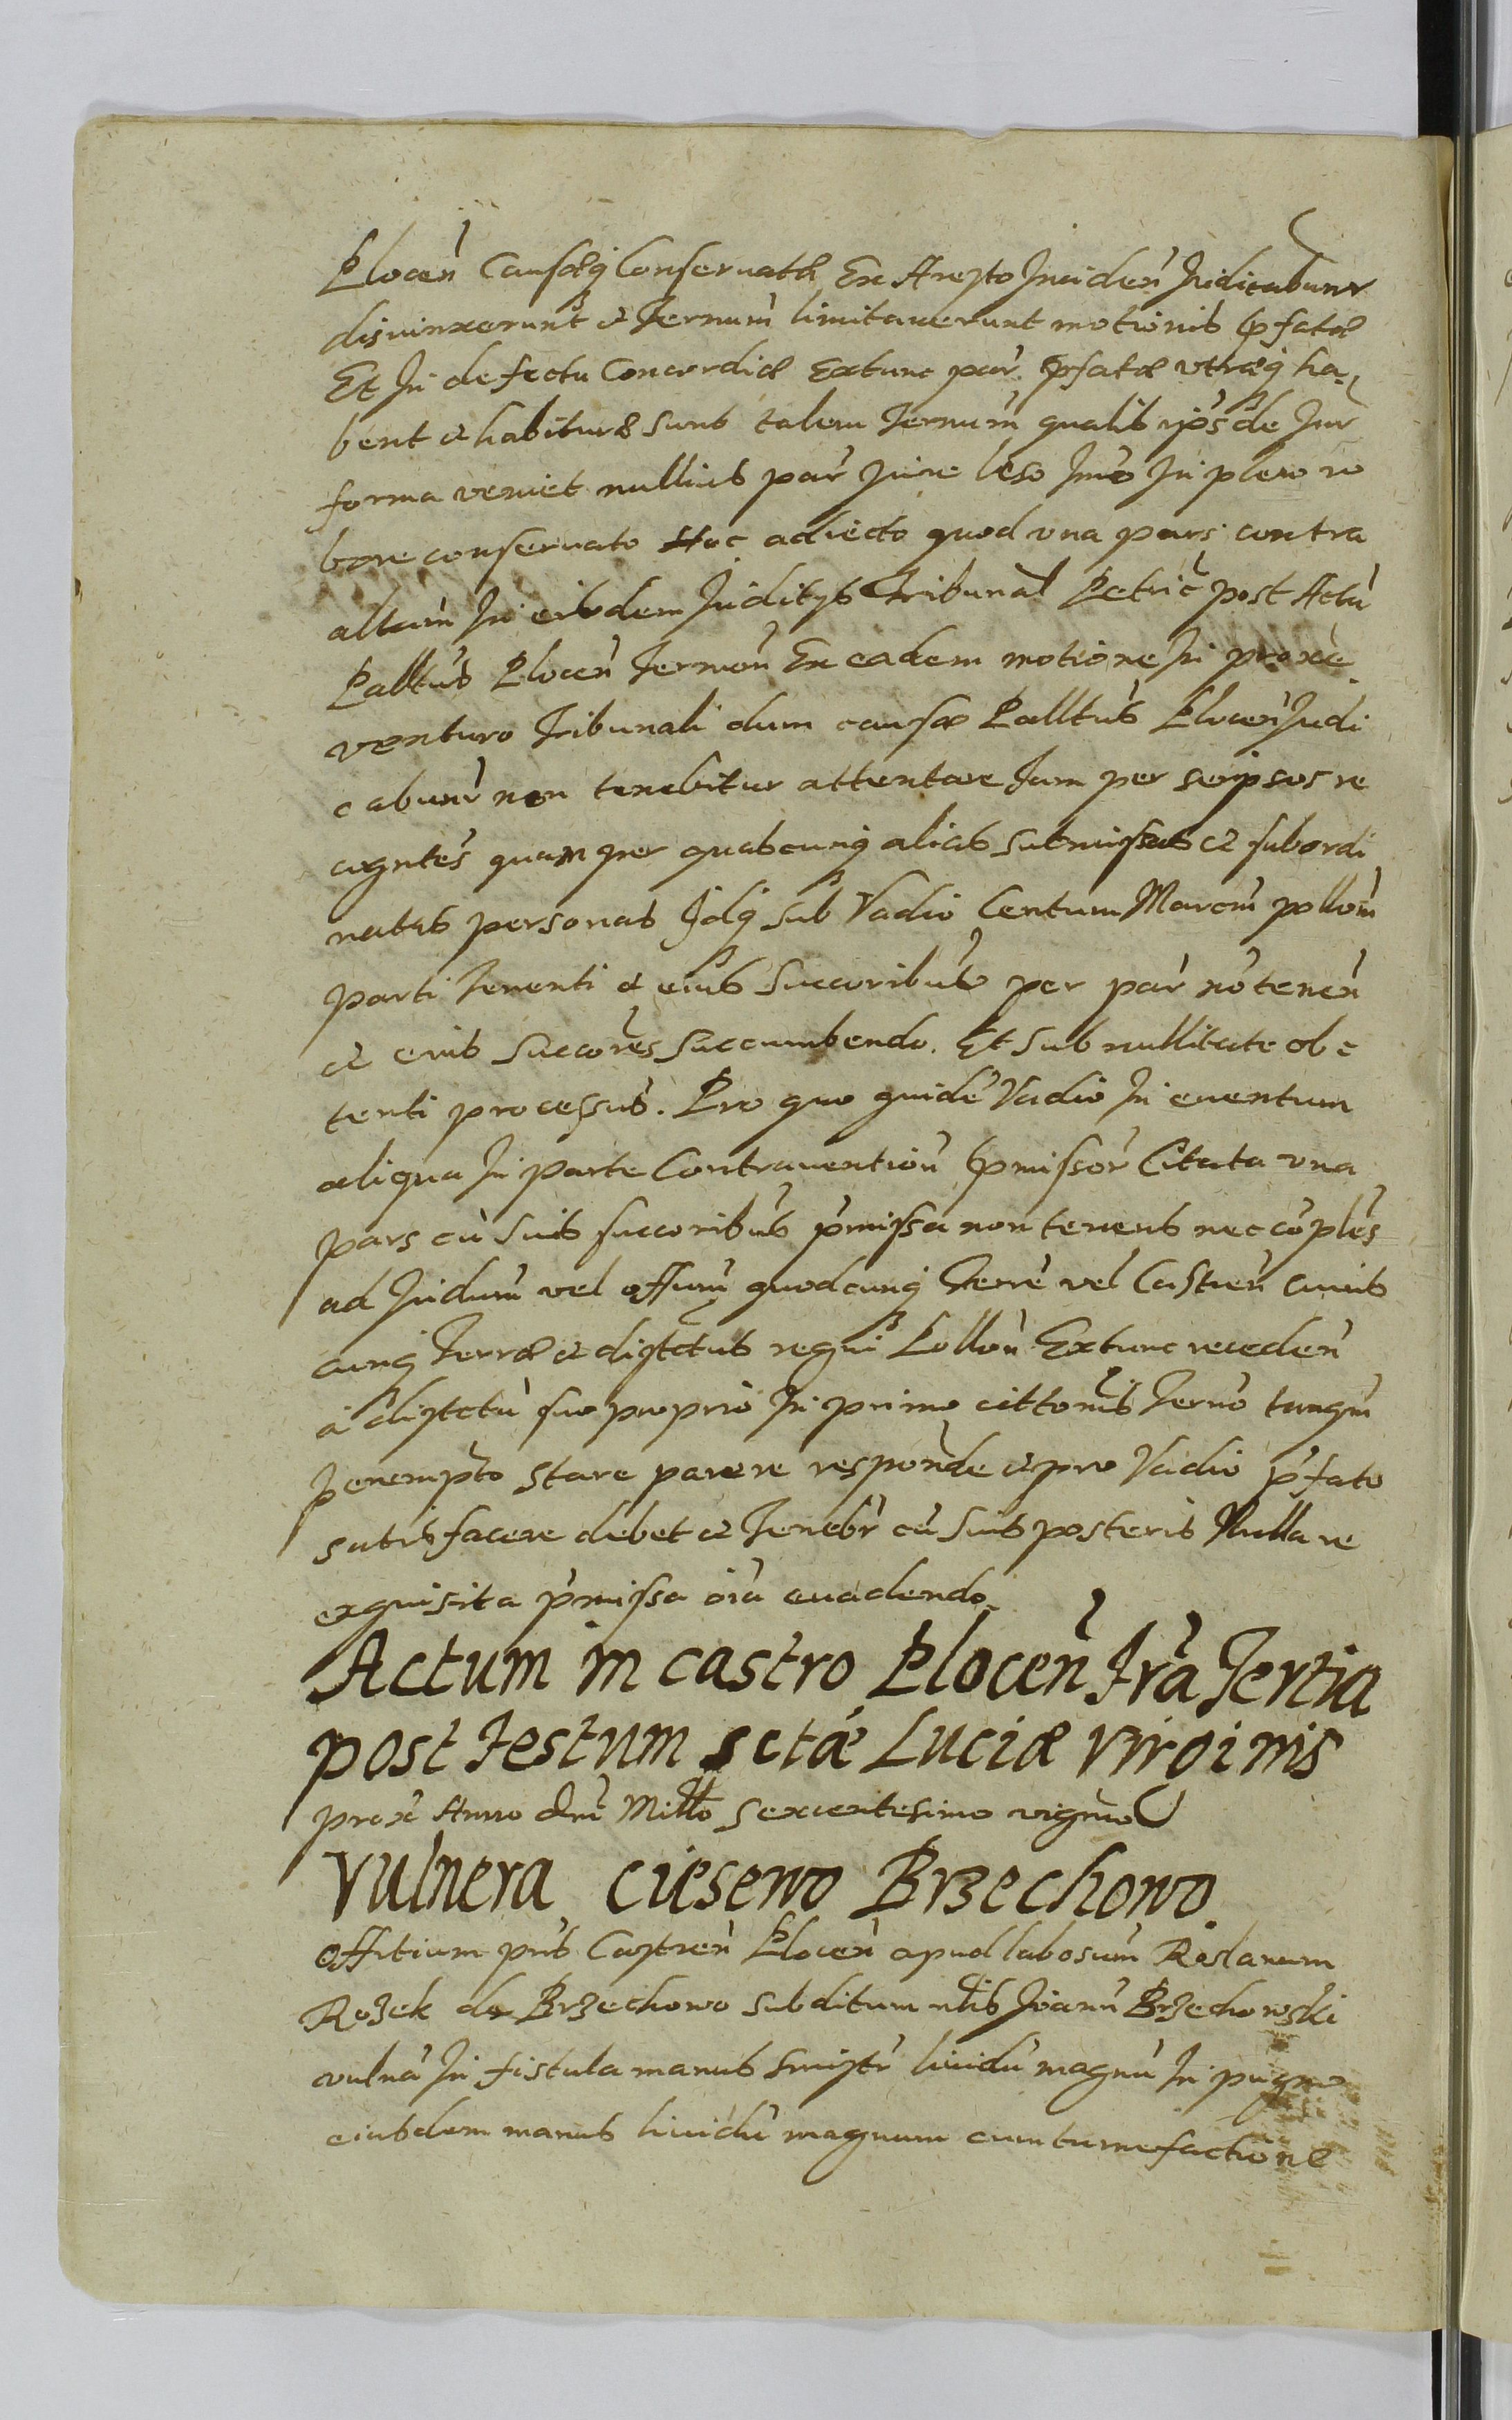 Plocen̄ Causasq̨ Conseruatæ Ex Arepto Inciden̄ Iudicabunr
disiunxerunt et Termum̄ limitauerunt motionis p̄fatæ
Et In defectu Concordiæ Extunc par p̄fatæ vtræq̨ ha-
bent et habituræ sunt talem Termum̄ qualis ip̄is de Iur
forma veniet nullius par Iure leso Imo In pleno ro
bore conseruato Hoc adiecto quod vna pars contra
altam̄ In eisdem Iuditÿs Tribunal Petric̄ post Actū
Palltus Plocen̄ Termon̄ Ex eadem motione In proxe
venturo Tribunali dum causæ Palltus Plocen̄ Iudi
cabunr̄ non tenebitur attentare Iam per seipsos re
cogntes quam per quascunq̨ alias submissas et subordi
natas personas Idq̨ sub Vadio Centum Marcm̄ pollom̄
parti Tenenti et eius Succoribus per par nō tenen̄
et eius Succores succumbendo. Et sub nullitate ob=
tenti processus. Pro quo quidē Vadio In euentum
aliqua In parte Contrauention̄ p̄missor̄ Citata vna
pars cū suis succoribus p̄missa non tenens nec cōples
ad Iudum̄ vel offum̄ quodcunq̨ Terrē vel Castren̄ cuius
cunq̨ Terræ et distctus regni Pollon̄ Extunc receden̄
à distctū suo proprio In primo cittonis Termō tanqm̄
peremptō stare parere respondē et pro Vadio p̄fato
satisfacere debet et Tenebr̄ cū suis posteris Nulla re
exquisita p̄missa oīa euadendo.
Actum in castro Plocen̄ Fr̄a Tertia
post Festum sctæ Luciæ virginis
prox̄ Anno dnī Millō sexcentesimo vigmō
Vulnera Ciesewo Brzechowo.
Offitium pn̄s Castren̄ Plocen̄ apud labosum̄ Roslanum
Rozek de Brzechowo subditum nlis Ioann̄ Brzechowski
vulnā In fistula manus sinistr̄ liuidū magnū In pugno
eiusdem manus liuidū magnum cum tumefactione